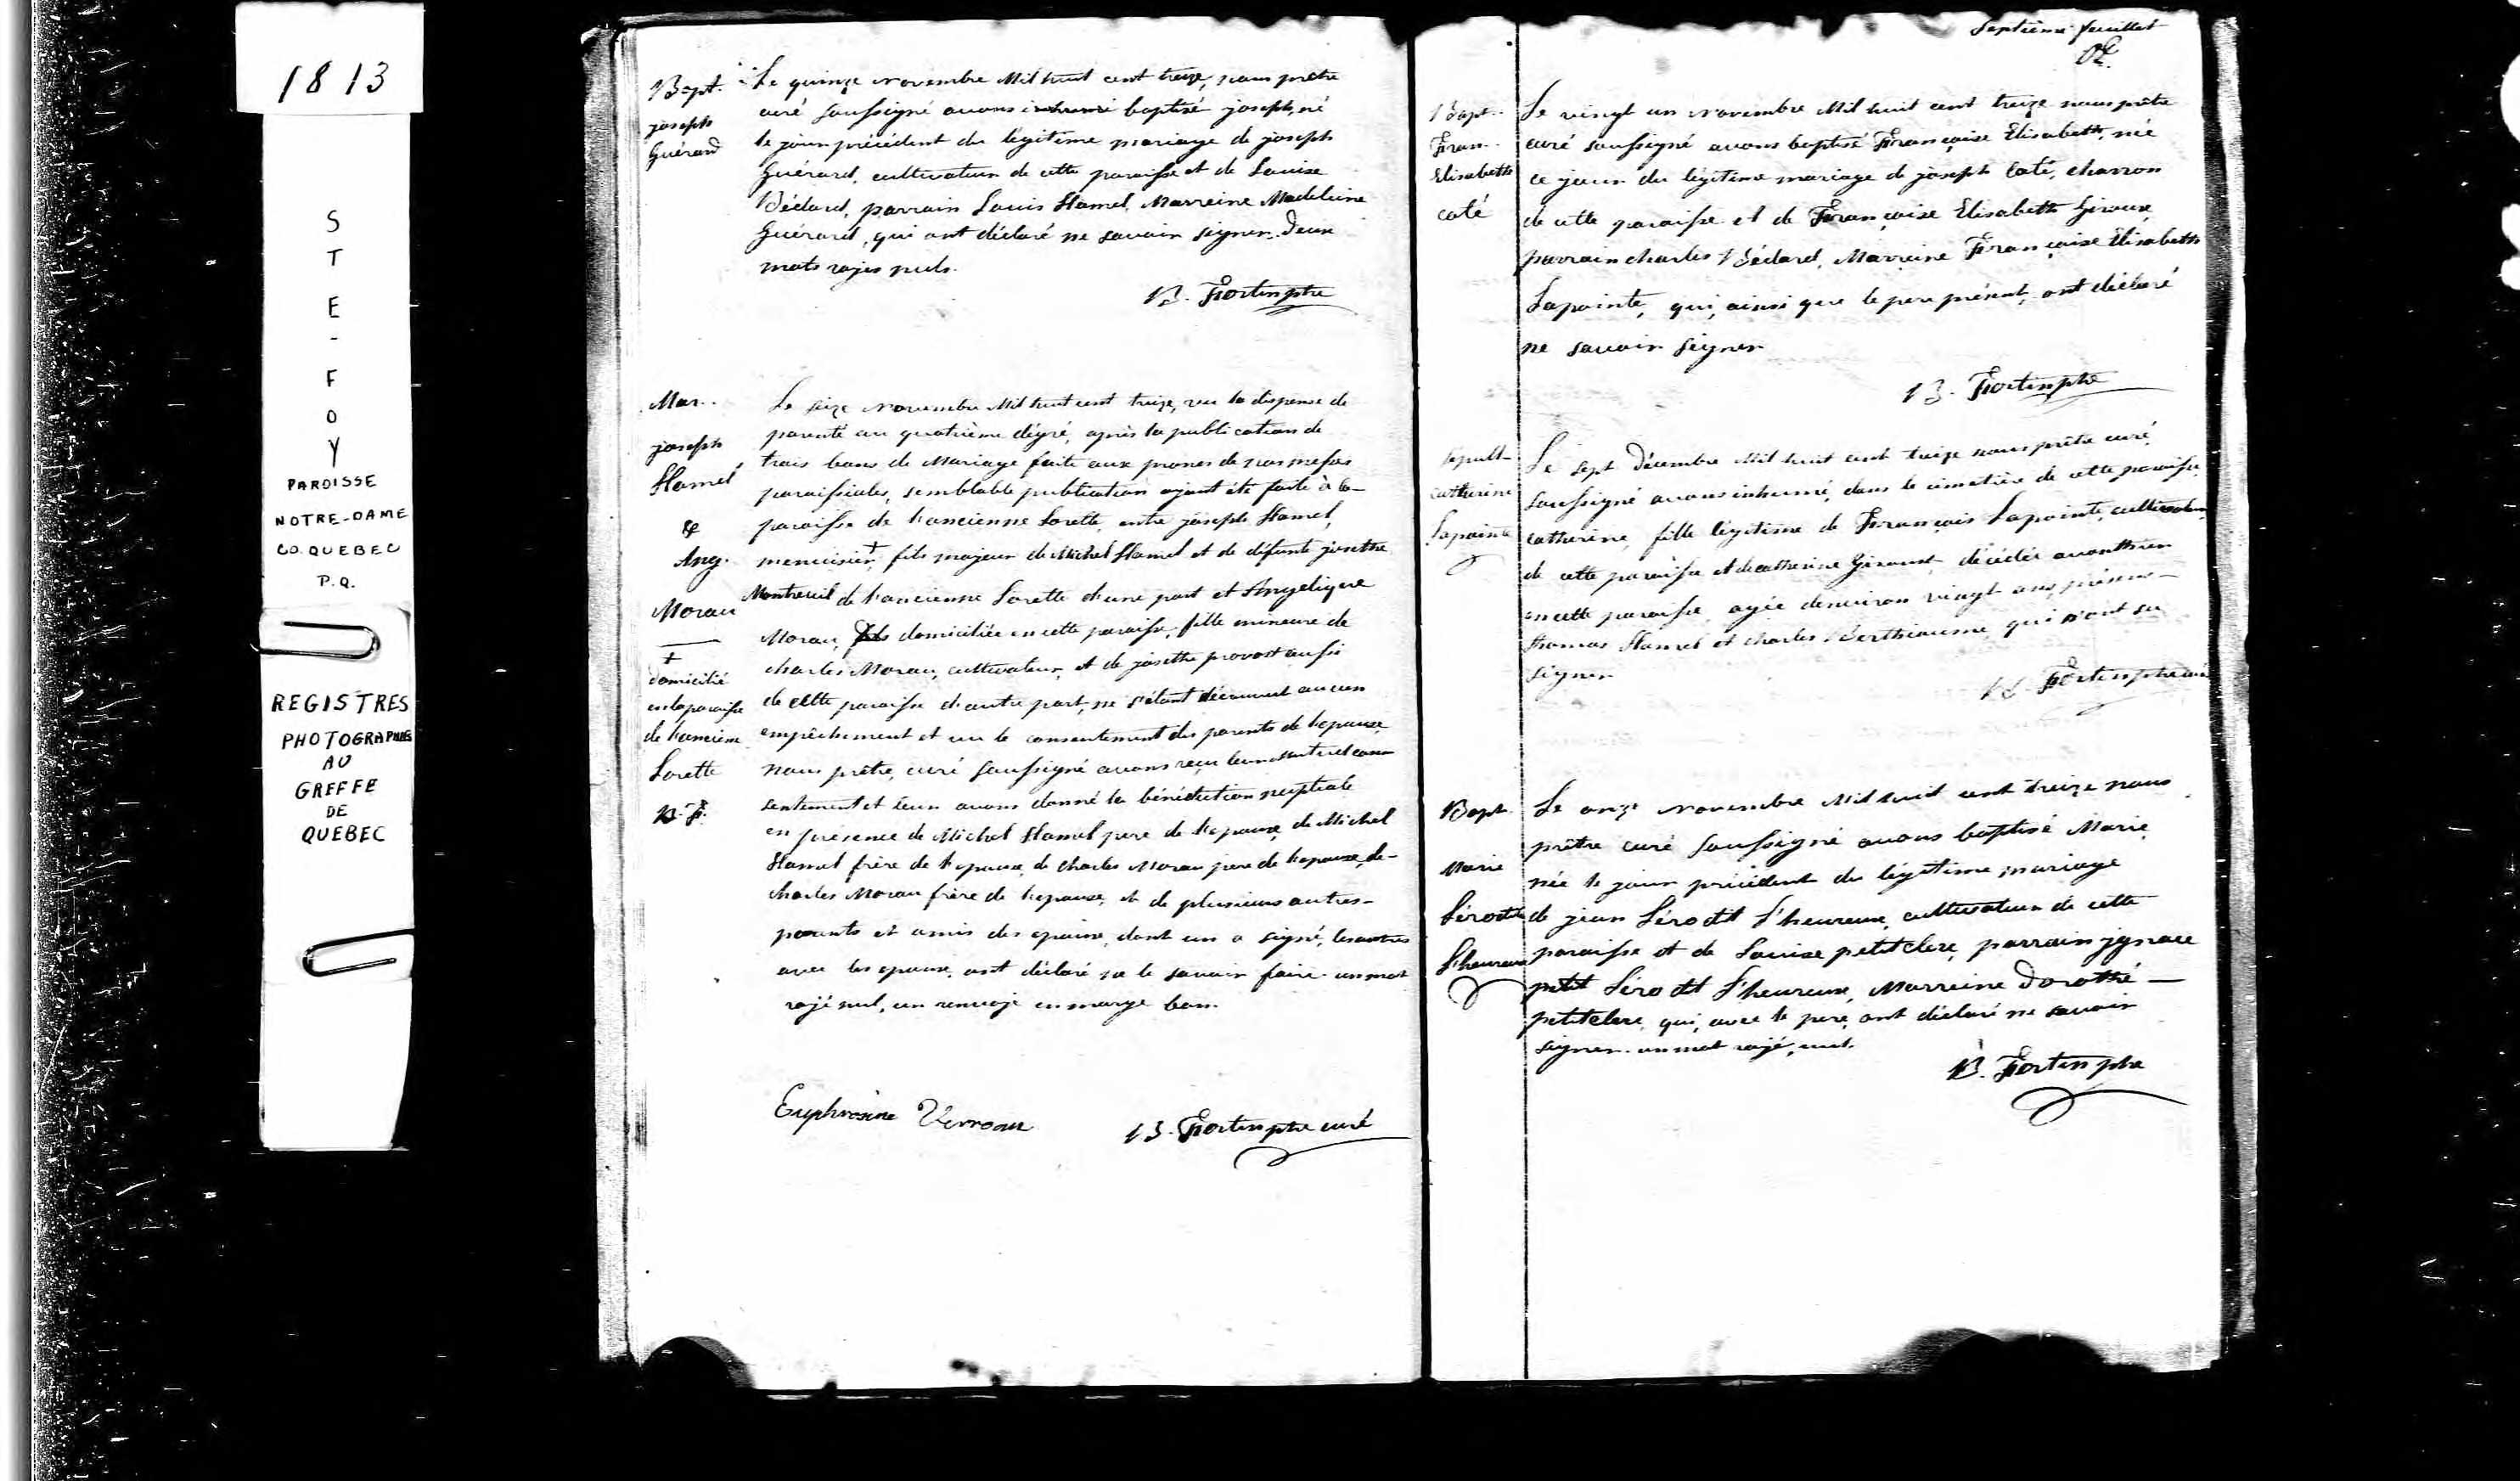 1813
S
T
E
-
F
O
Y
PAROISSE
NOTRE-DAME
CO. QUEBEC
P.Q.
REGISTRES
PHOTOGRAPHIES
AU
GREFFE
DE
QUEBEC
Bapt.
joseph
Guérard
Le quinze novembre Mil huit cent treize, nous prêtre
curé soussigné avons baptisé joseph, né
le jour précédent du légitime mariage de joseph
Guérard, cultivateur de cette paroisse et de Louise
Bédard, parrain Louis Hamel, Marreine Madeleine
Guérard, qui ont déclaré ne savoir signer. Deux
mots rajés nuls.
B. Fortin ptre
Mar.
joseph
Hamel
&
Ang.
Morau
+
domicilié
en la paroisse
de l'ancienne
Lorette
B. F.
Le seize novembre Mil huit cent treize, vu la dispense de
parenté au quatrième dégré, après la publication de
trois bans de Mariage faite aux prones de nos messes
paroissiales, semblable publication ajant été faite à la
paroisse de l'ancienne Lorette, entre joseph Hamel,
menuisier, + fils majeur de Michel Hamel et de défunte josethe
Montreuil de l'ancienne Lorette d'une part et Angelique
Morau, domiciliée en cette paroisse, fille mineure de
charles Morau, cultivateur, et de josethe provost aussi
de cette paroisse d'autre part, ne s'étant découvert aucun
empêchement et vu le consentement des parents de l'epouse,
nous prêtre, curé soussigné avons reçu leur mutuel con-
sentement et leur avons donné la bénédiction nuptiale
en présence de Michel Hamel pere de l'epoux, de Michel
Hamel frère de l'epoux, de charles Morau pere de l'epouse, de-
charles Morau frère de l'epouse, et de plusieurs autres-
parents et amis des epoux, dont un a signé, les autres
avec les epoux, ont déclaré ne le savoir faire. un mot
rajé nul, un renvoj en marge bon.
Euphrosine Verrau
B. Fortin ptre curé
Septième feuillet
Bapt.
Fran.
Elisabeth
coté
Le vingt un novembre Mil huit cent treize nous prêtre
curé soussigné avons baptisé Françoise Elisabeth, née
ce jour du légitime mariage de joseph Coté, charron
de cette paroisse et de Françoise Elisabeth Giroux,
parrain charles Bédard, Marreine Françoise Elisabeth
Lapointe, qui, ainsi que le pere présent, ont déclaré
ne savoir signer
B. Fortin ptre
Sepult.
catherine
Lapointe
Le sept Décembre Mil huit cent treize nous prêtre curé
soussigné avons inhumé, dans le cimetière de cette paroisse
catherine, fille légitime de François Lapointe, cultivateur
de cette paroisse et de catherine Giroux, décédée avanthier
en cette paroisse, agée d'environ vingt ans, présens-
thomas Hamel et charles Berthiaume, qui n'ont su
signer
B. Fortin ptre curé
Bapt.
Marie
Séro dit
L'heureux
Le onze novembre Mil huit cent treize nous
prêtre curé soussigné avons baptisé Marie
née le jour précédent du légitime mariage
de jean Séro dit L'heureux, cultivateur de cette
paroisse et de Louise petitclerc, parrain jgnace
petit Séro dit L'heureux, Marreine Dorothé-
petitclerc, qui, avec le pere, ont déclaré ne savoir
signer. un mot rajé, nul.
B. Fortin ptre